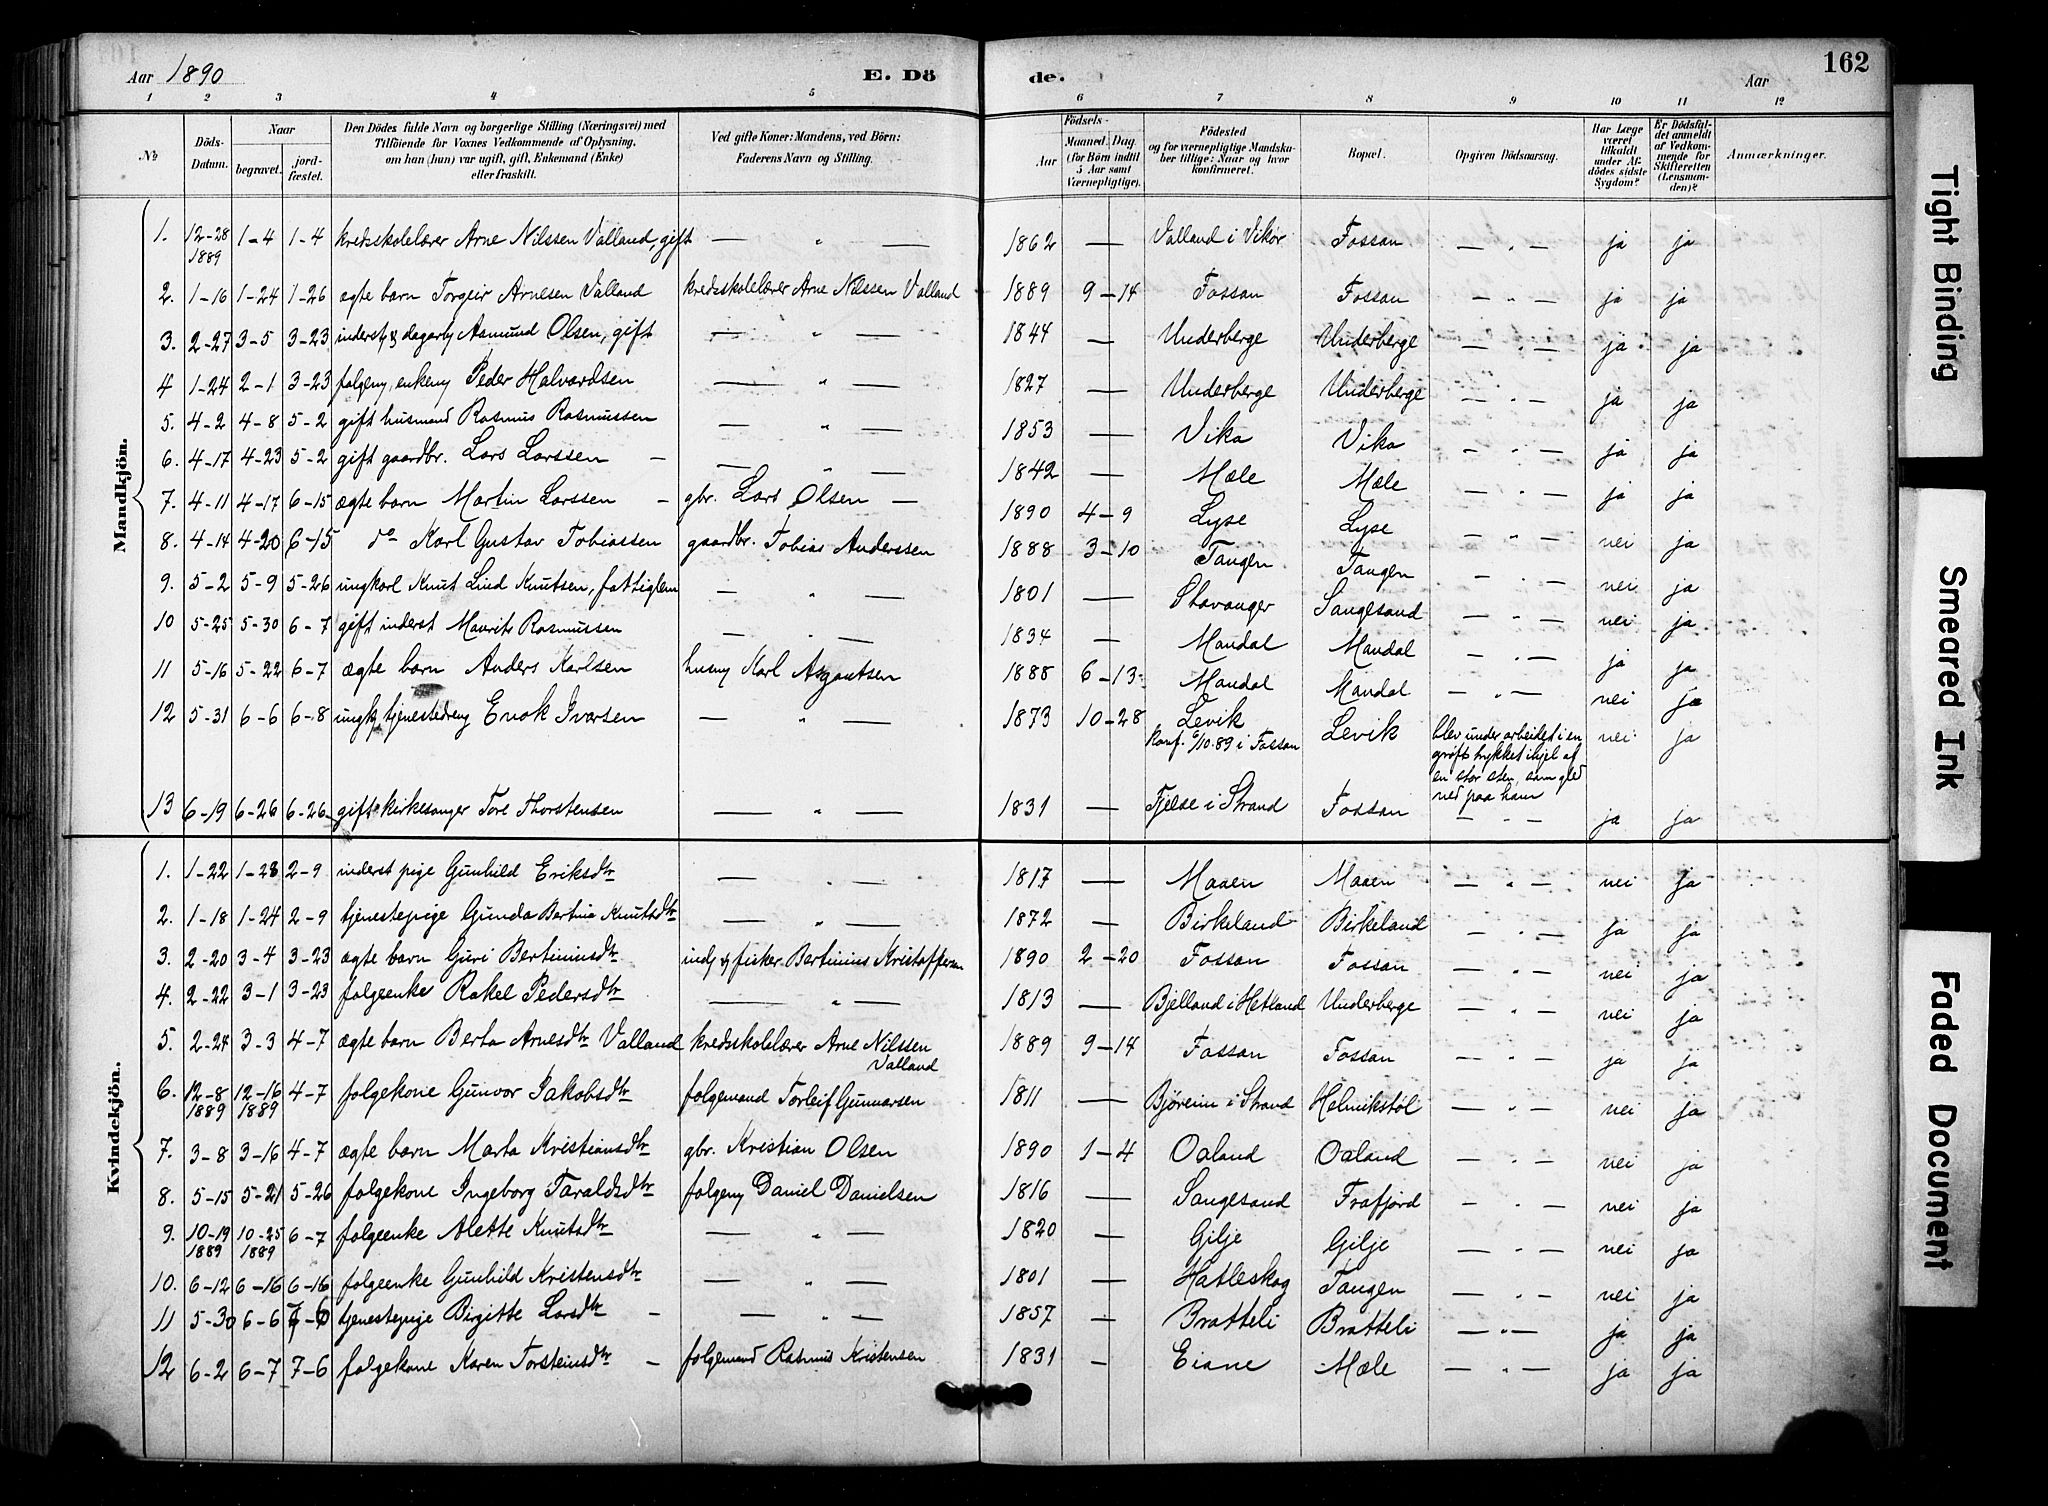 Aar 1890 E. Dö de. Aar 162
1 2 3 4 5 6 7 8 9 10 11 12
No
Döds-Datum.
Naar
begravet.
jord-fæstet.
Den Dödes fulde Navn og borgerlige Stilling (Næringsvei) med
Tilföiende for Voxnes Vedkommende af Oplysning,
om han (hun) var ugift, gift, Enkemand (Enke)
eller fraskilt.
Ved gifte Koner: Mandens, ved Börn:
Faderens Navn og Stilling.
Födsels-
Aar
Maaned. Dag.
(for Börn indtil
5 Aar samt
Værnepligtige).
Födested
og for værnepligtige Mandska-
ber tillige: Naar og hvor
konfirmeret.
Bopæl.
Opgiven Dödsaarsag.
Har Læge
været
tilkaldt
under Af-
dödes sidste
Sygdom?
Er Dödsfal-
det anmeldt
af Vedkom-
mende for
Skifteretten
(Lensman-
den)?
Anmærkninger.
Mandkjön.
1. 12-28 1889 1-4 1-4 kredsskolelærer Arne Nilssen Valland, gift — " — 1862 — Valland i Vikør Fossan — " — ja ja
2. 1-16 1-24 1-26 ægte barn Torgeir Arnesen Valland kredsskolelærer Arne Nilssen Valland 1889 9-14 Fossan Fossan — " — ja ja
3. 2-27 3-5 3-23 inderst & dagarb Asmund Olsen, gift — " — 1844 — Underberge Underberge — " — ja ja
4 1-24 2-1 3-23 folgem, enkem Peder Halvardsen — " — 1827 — Underberge Underberge — " — ja ja
5. 4-2 4-8 5-2 gift husmand Rasmus Rasmussen — " — 1853 — Vika Vika — " — ja ja
6. 4-17 4-23 5-2 gift gaardbr. Lars Larssen — — " — 1842 — Mæle Mæle — " — ja ja
7. 4-11 4-17 6-15 ægte barn Martin Larssen — gbr. Lars Olsen — 1890 4-9 Lyse Lyse — " — nei ja
8. 4-14 4-20 6-15 do Karl Gustav Tobiassen gaardbr. Tobias Anderssen 1888 3-10 Tangen Tangen — " — nei ja
9. 5-2 5-9 5-26 ungkarl Knut Lind Knutsen, fattiglem — " — 1801 — Stavanger Sangesand — " — nei ja
10 5-25 5-30 6-7 gift inderst Maurits Rasmussen — " — 1834 — Mandal Mandal — " — ja ja
11 5-16 5-22 6-7 ægte barn Anders Karlsen husm Karl Asgautsen 1888 6-13 Mandal Mandal — " — nei ja
12 5-31 6-6 6-8 ungk, tjenestedreng Enok Ivarsen — " — 1873 10-28 Levik Levik blev under arbeidet i en nei ja
konf. 6/10.89 i Fossan grøft trykket ihjel af
en stor sten, som gled
ned paa ham
13 6-19 6-26 6-26 gift kirkesanger Tore Thorstensen — " — 1831 — Tjelse i Strand Fossan — " — ja ja
Kvindekjön.
1. 1-22 1-28 2-9 inderst pige Gunhild Eriksdtr — " — 1817 — Maaen Maaen — " — nei ja
2. 1-18 1-24 2-9 tjenestepige Gunda Bertine Knutsdtr — " — 1872 — Birkeland Birkeland — " — ja ja
3. 2-20 3-4 3-23 ægte barn Guri Bertiniusdtr ind, & fisker Bertinius Kristoffersen 1890 2-20 Fossan Fossan — " — nei ja
4. 2-22 3-1 3-23 folgeenke Rakel Pedersdtr — " — 1813 — Bjelland i Hetland Underberge — " — nei ja
5. 2-24 3-3 4-7 ægte barn Berta Arnesdtr Valland kredsskolelærer Arne Nilssen Valland 1889 9-14 Fossan Fossan — " — ja ja
6. 12-8 1889 12-16 1889 4-7 folgekone Gunvor Jakobsdtr folgemand Torleif Gunnarsen 1811 — Bjøreim i Strand Helmikstøl — " — nei ja
7. 3-8 3-16 4-7 ægte barn Marta Kristiansdtr gbr. Kristian Olsen 1890 1-4 Oaland Oaland — " — nei ja
8. 5-15 5-21 5-26 folgekone Ingeborg Taraldsdtr folgem Daniel Danielsen 1816 — Sangesand Frafjord — " — nei ja
9. 10-19 1889 10-25 1889 6-7 folgeenke Alette Knutsdtr — " — 1820 — Gilje Gilje — " — nei ja
10. 6-12 6-16 6-16 folgeenke Gunhild Kristensdtr — " — 1801 — Hatleskog Tangen — " — nei ja
11 5-30 6-6 7-6 tjenestepige Birgitte Larsdtr — — " — 1857 — Bratteli Bratteli — " — ja ja
12 6-2 6-7 7-6 folgekone Karen Torsteinsdtr — folgemand Rasmus Kristensen 1831 — Eiane Mæle — " — ja ja
Tight Binding
Smeared Ink
Faded Document